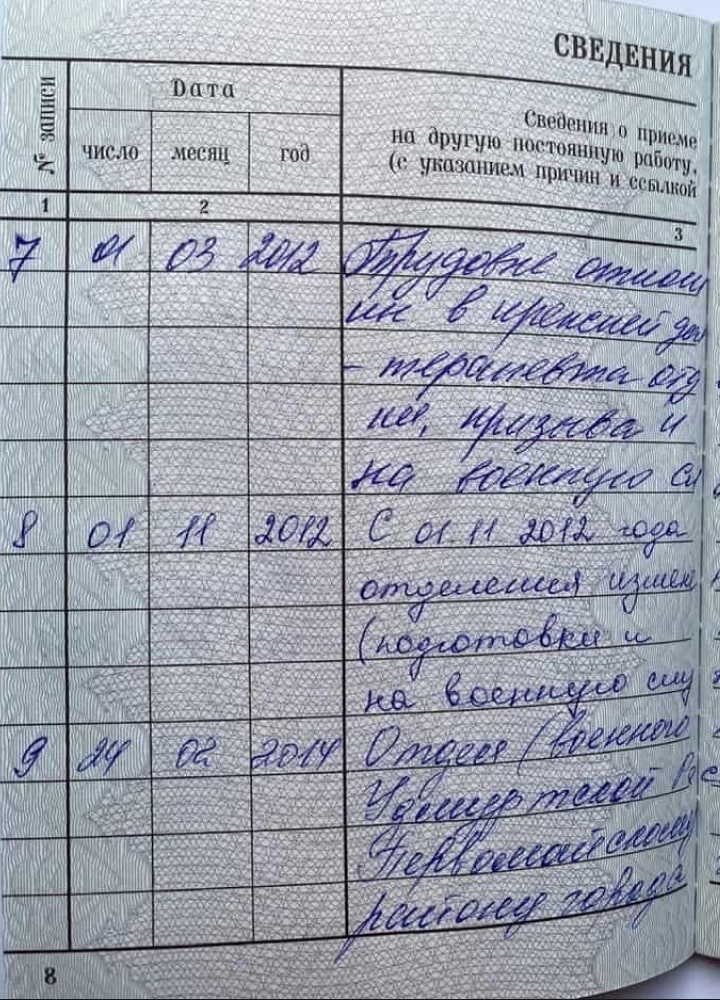 СВЕДЕНИЯ
№ записи
Дата
число месяц год
Сведения о приеме
на другую постоянную работу,
(с указанием причин и ссылкой
1 2 3
7 01 03 2012 Трудовые отнош
ия в прежней дол
- терапевта отд
ия, призыва и
на военную сл
8 01 11 2012 С 01.11 2012 года
отделения измене
(подготовки и
на военную слу
9 24 02 2014 Отдел (военного
Удмуртской Ре
Первомайскому
району города
8